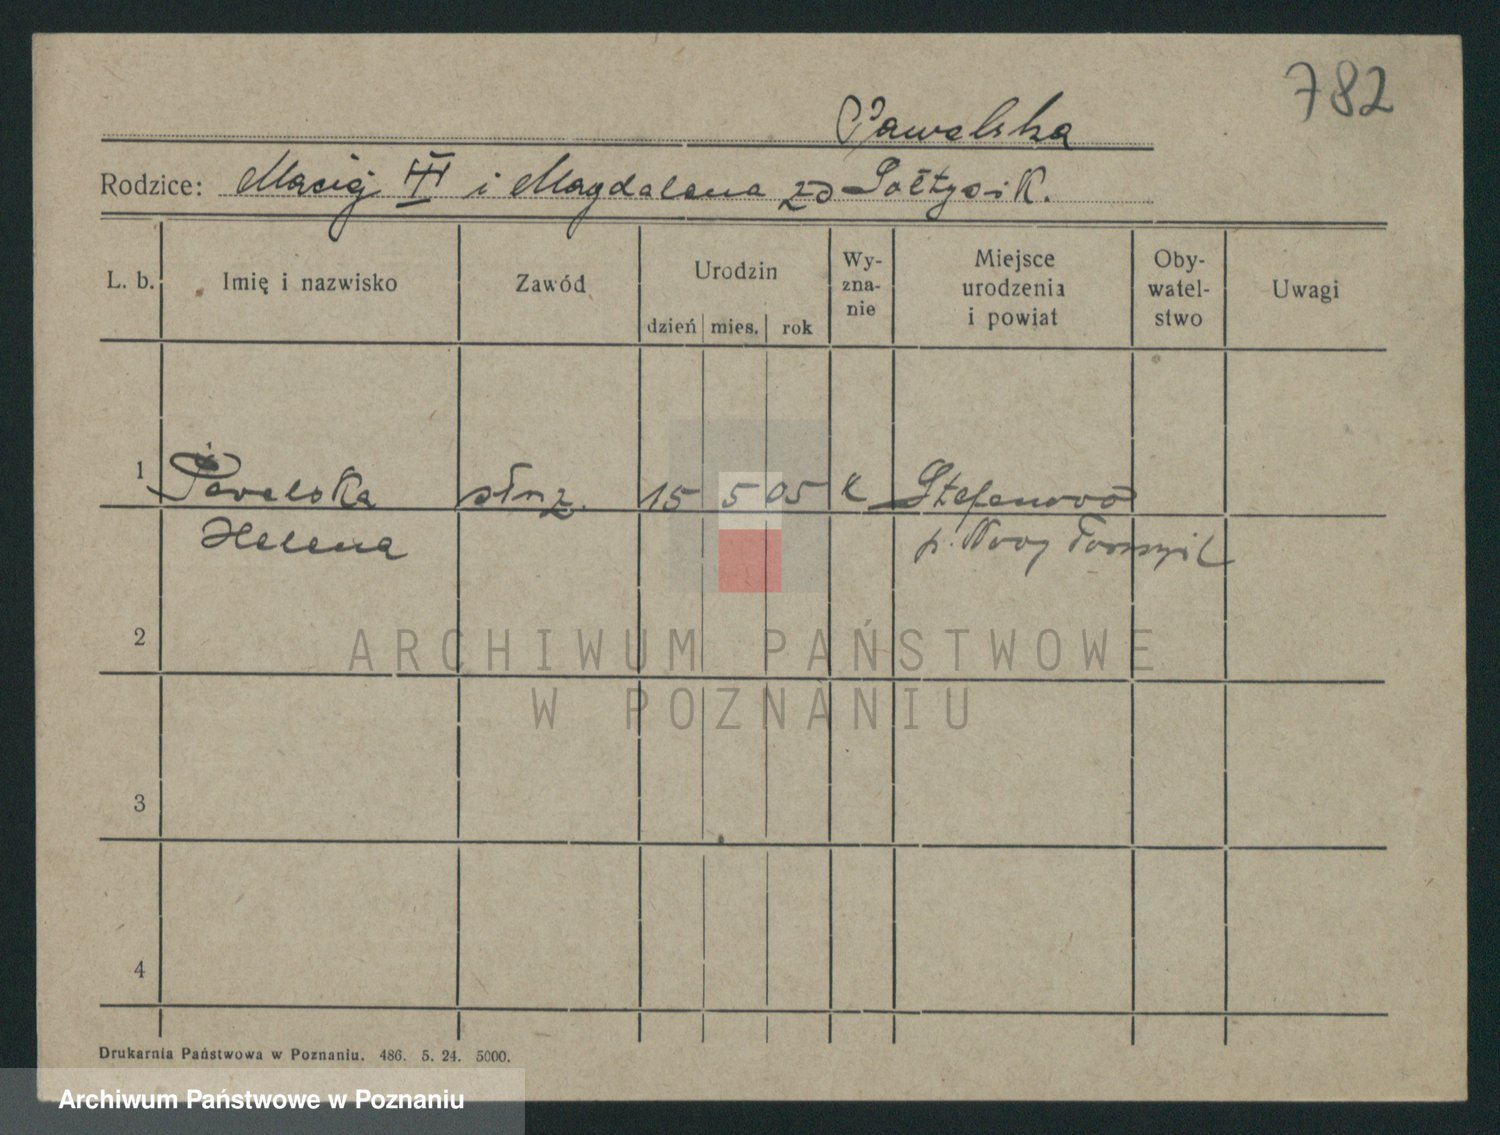 782
Pawelska
Rodzice: Maciej i Magdalena zd Sołtysik.
L. b. Imię i nazwisko Zawód Urodzin dzień mies. rok Wy-zna-nie Miejsce urodzenia i powiat Oby-watel-stwo Uwagi
1 Pawelska służ. 15 5 05 k Stefanowo
Helena p. Nowy Tomyśl
2
ARCHIWUM PAŃSTWOWE
W POZNANIU
3
4
Drukarnia Państwowa w Poznaniu. 486. 5. 24. 5000.
Archiwum Państwowe w Poznaniu